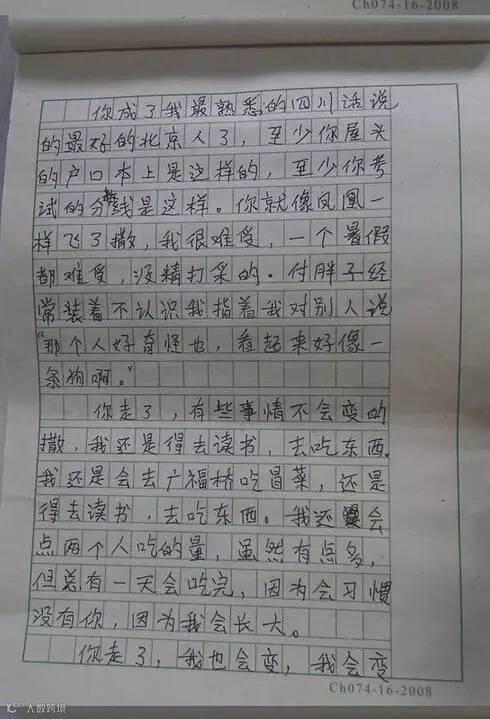 Ch074-16-2008
你成了我最熟悉的四川话说
的最好的北京人了，至少你屋头
的户口本上是这样的，至少你考
试的分数线是这样。你就像凤凰一
样飞了撒，我很难受，一个暑假
都难受，没精打采的。付胖子经
常装着不认识我指着我对别人说
“那个人好奇怪也，看起来好像一
条狗啊。”
你走了，有些事情不会变的
撒，我还是得去读书，去吃东西。
我还是会去广福桥吃冒菜，还是
得去读书，去吃东西。我还会
点两个人吃的量，虽然有点多，
但总有一天会吃完，因为会习惯
没有你，因为我会长大。
你走了，我也会变，我会变
Ch074-16-2008
大数跨境